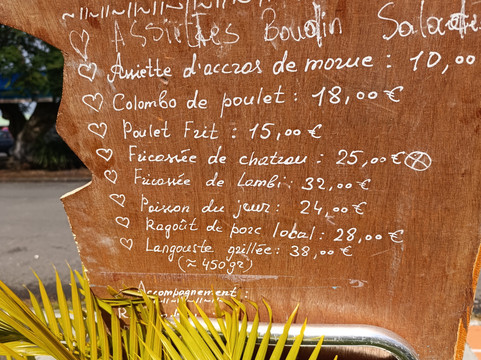 Assiettes Boudin Salade
Assiette d'accras de morue : 10,00
Colombo de poulet : 18,00 €
Poulet Frit : 15,00 €
Fricassée de chatrou : 25,00 €
Fricassée de Lambi : 32,00 €
Poisson du jour : 24,00 €
Ragoût de porc local : 28,00 €
Langouste grillée : 38,00 €
(≈ 450gr)
Accompagnement :